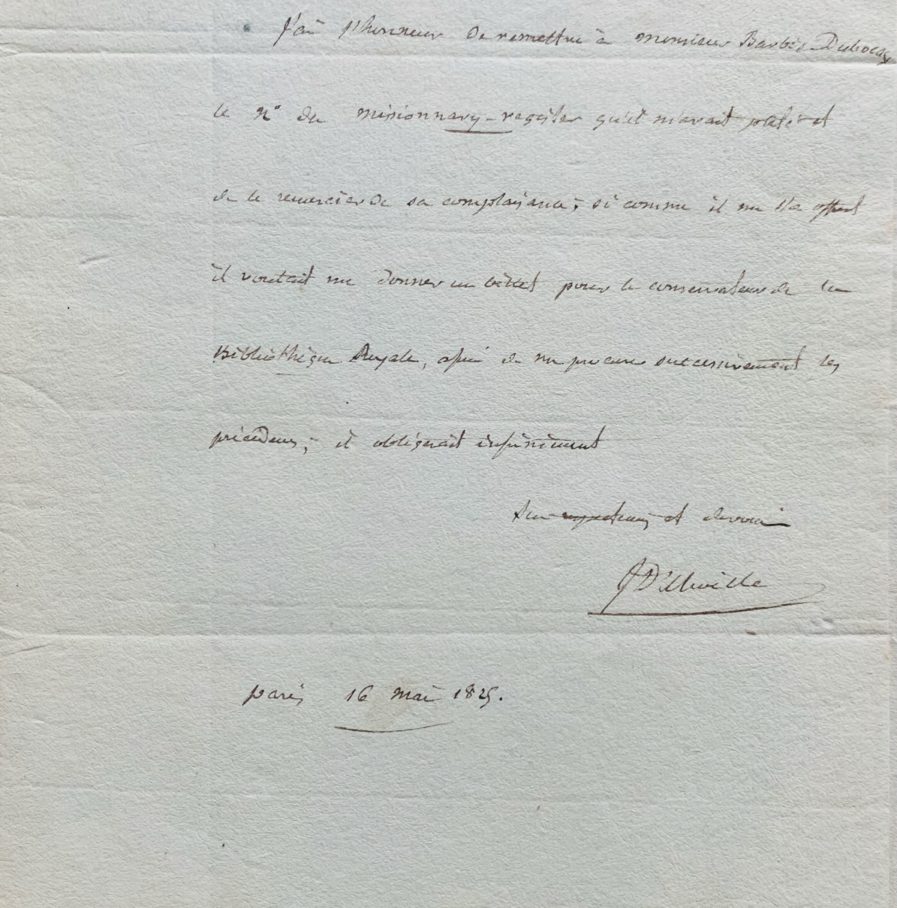 J'ai l'honneur de remettre à monsieur Barbié-Dubocag
le n° du missionnary-register qu'il m'avait prêté et
de le remercier de sa complaisance; si comme il me l'a offert
il voulait me donner un billet pour le conservateur de la
Bibliothèque Royale, afin de me procurer successivement les
précédens, il obligerait infiniment
Son et dévoué
J D'Urville
paris 16 mai 1825.